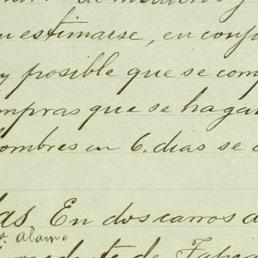 estimarse, en conf
y posible que se com
mpras que se hagan
hombres en 6. dias se
En dos carros d
Alamo